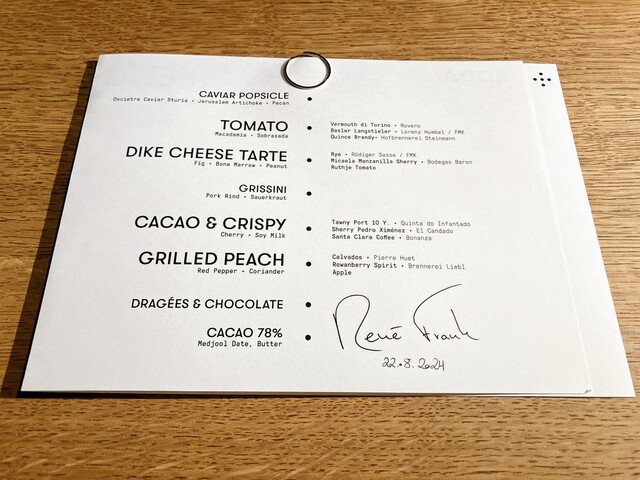 CAVIAR POPSICLE
Oscietre Caviar Sturia • Jerusalem Artichoke • Pecan
TOMATO
Macadamia • Sobrasada
Vermouth di Torino • Rovero
Basler Langstieler • Lorenz Humbel / FMK
Quince Brandy• Hofbrennerei Steinmann
DIKE CHEESE TARTE
Fig • Bone Marrow • Peanut
Rye • Rüdiger Sasse / FMK
Micaela Manzanilla Sherry • Bodegas Baron
Ruthje Tomato
GRISSINI
Pork Rind • Sauerkraut
CACAO & CRISPY
Cherry • Soy Milk
Tawny Port 10 Y. • Quinta do Infantado
Sherry Pedro Ximénez • El Candado
Santa Clara Coffee • Bonanza
GRILLED PEACH
Red Pepper • Coriander
Calvados • Pierre Huet
Rowanberry Spirit • Brennerei Liebl
Apple
DRAGÉES & CHOCOLATE
CACAO 78%
Medjool Date, Butter
René Frank
22.8.2024